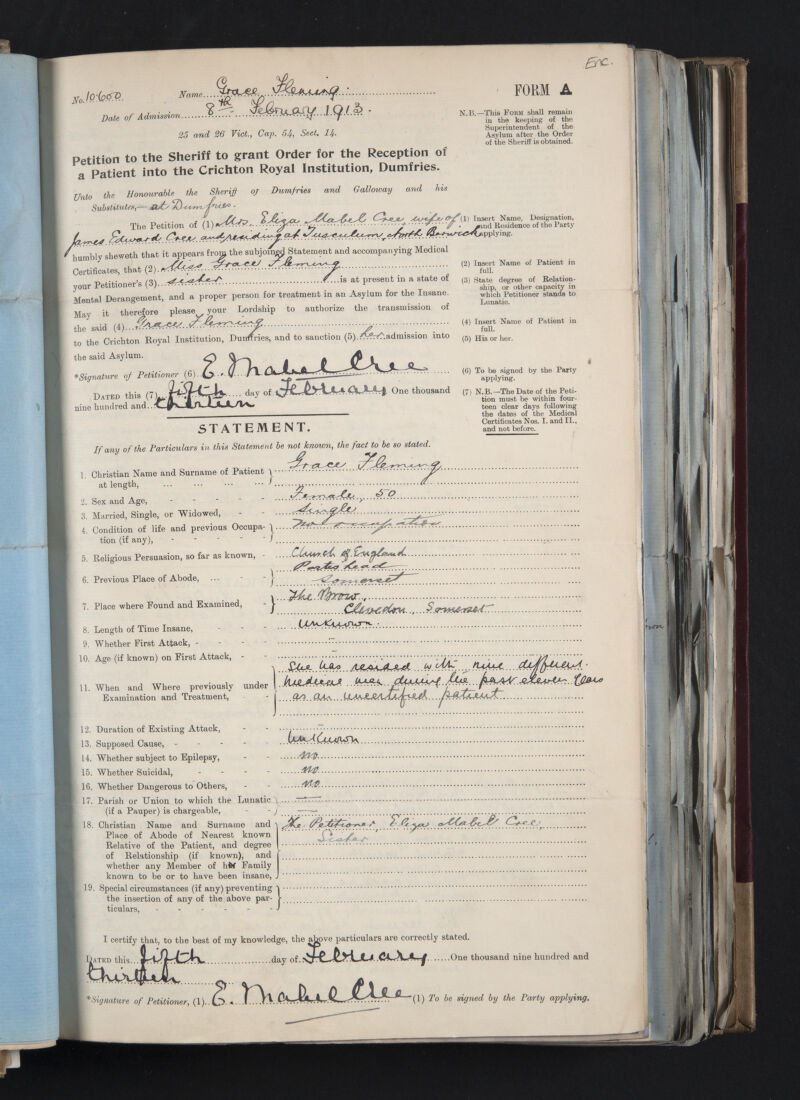 Enc.
No. 10600 Name Grace Fleming. FORM A
Date of Admission 8th February 1913.
25 and 26 Vict., Cap. 54, Sect. 14.
N.B.—This Form shall remain
in the keeping of the
Superintendent of the
Asylum after the Order
of the Sheriff is obtained.
Petition to the Sheriff to grant Order for the Reception of
a Patient into the Crichton Royal Institution, Dumfries.
Unto the Honourable the Sheriff of Dumfries and Galloway and his
Substitutes,—at Dumfries.
The Petition of (1) Mrs. Eliza Mabel Cree, wife of
James Edward Cree and residing at Tusculum, North Berwick
humbly sheweth that it appears from the subjoined Statement and accompanying Medical
Certificates, that (2) Miss Grace Fleming
your Petitioner's (3) sister is at present in a state of
Mental Derangement, and a proper person for treatment in an Asylum for the Insane.
May it therefore please your Lordship to authorize the transmission of
the said (4) Grace Fleming
to the Crichton Royal Institution, Dumfries, and to sanction (5) her admission into
the said Asylum.
*Signature of Petitioner (6) E. Mabel Cree
Dated this (7) fifth day of February One thousand
nine hundred and thirteen
(1) Insert Name, Designation,
and Residence of the Party
applying.
(2) Insert Name of Patient in
full.
(3) State degree of Relation-
ship, or other capacity in
which Petitioner stands to
Lunatic.
(4) Insert Name of Patient in
full.
(5) His or her.
(6) To be signed by the Party
applying.
(7) N.B.—The Date of the Peti-
tion must be within four-
teen clear days following
the dates of the Medical
Certificates Nos. I. and II.,
and not before.
STATEMENT.
If any of the Particulars in this Statement be not known, the fact to be so stated.
1. Christian Name and Surname of Patient Grace Fleming
at length,
2. Sex and Age, Female, 50
3. Married, Single, or Widowed, Single
4. Condition of life and previous Occupa- no occupation
tion (if any),
5. Religious Persuasion, so far as known, Church of England
6. Previous Place of Abode, Portishead
Somerset
7. Place where Found and Examined, The Brow,
Clevedon, Somerset
8. Length of Time Insane, Unknown.
9. Whether First Attack, —
10. Age (if known) on First Attack, —
11. When and Where previously under
Examination and Treatment,
She has resided with nine different
medical men during the past eleven years
as an uncertified patient
12. Duration of Existing Attack, —
13. Supposed Cause, Unknown
14. Whether subject to Epilepsy, no
15. Whether Suicidal, no
16. Whether Dangerous to Others, no
17. Parish or Union to which the Lunatic —
(if a Pauper) is chargeable, —
18. Christian Name and Surname and The Petitioner, Eliza Mabel Cree,
Place of Abode of Nearest known Sister
Relative of the Patient, and degree
of Relationship (if known), and
whether any Member of her Family
known to be or to have been insane,
19. Special circumstances (if any) preventing
the insertion of any of the above par-
ticulars,
I certify that, to the best of my knowledge, the above particulars are correctly stated.
Dated this fifth day of February One thousand nine hundred and
thirteen
*Signature of Petitioner, (1) E. Mabel Cree (1) To be signed by the Party applying.